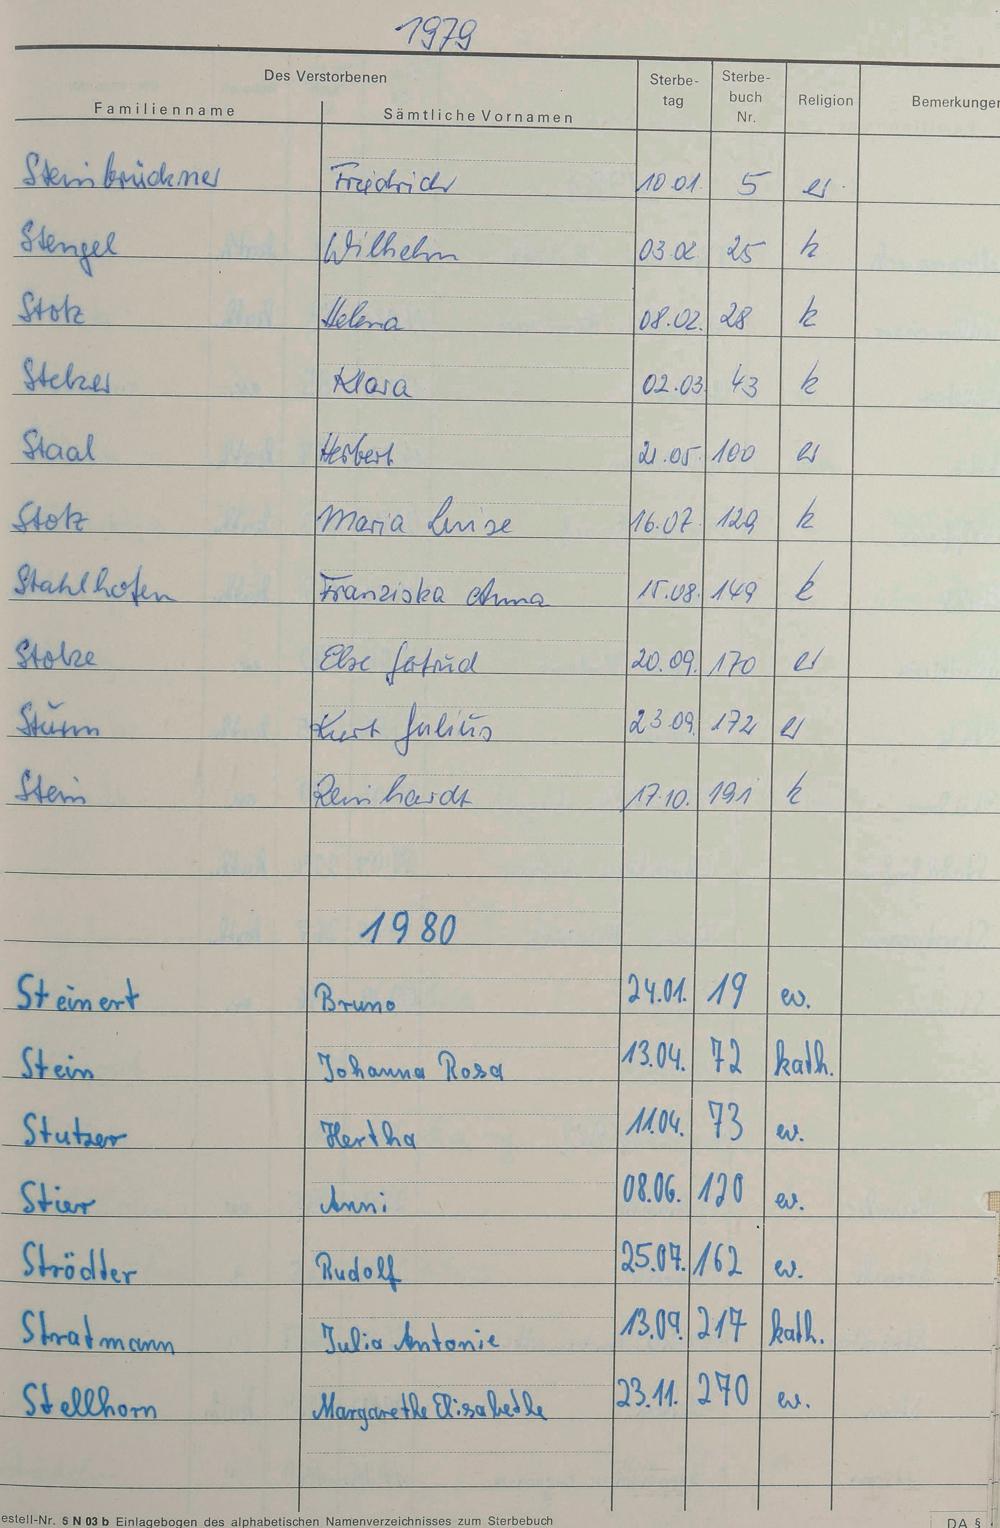 1979
Des Verstorbenen Sterbe- Sterbe-
Familienname Sämtliche Vornamen tag buch Nr. Religion Bemerkungen
Steinbrückner Friedrich 10.01. 5 ev.
Stengel Wilhelm 03.02. 25 k
Stotz Helena 08.02. 28 k
Stelzer Klara 02.03. 43 k
Staal Herbert 21.05. 100 ev
Stotz Maria Luise 16.07. 129 k
Stahlhofen Franziska Anna 15.08. 149 k
Stolze Else Gertrud 20.09. 170 ev
Sturm Kurt Julius 23.09. 172 ev
Stein Reinhardt 17.10. 191 k
1980
Steinert Bruno 24.01. 19 ev.
Stein Johanna Rosa 13.04. 72 kath.
Stutzer Hertha 11.04. 73 ev.
Stier Anni 08.06. 120 ev.
Strödter Rudolf 25.07. 162 ev.
Stratmann Julia Antonie 13.09. 217 kath.
Stellhorn Margarethe Elisabethe 23.11. 270 ev.
estell-Nr. § N 03 b Einlagebogen des alphabetischen Namenverzeichnisses zum Sterbebuch DA §